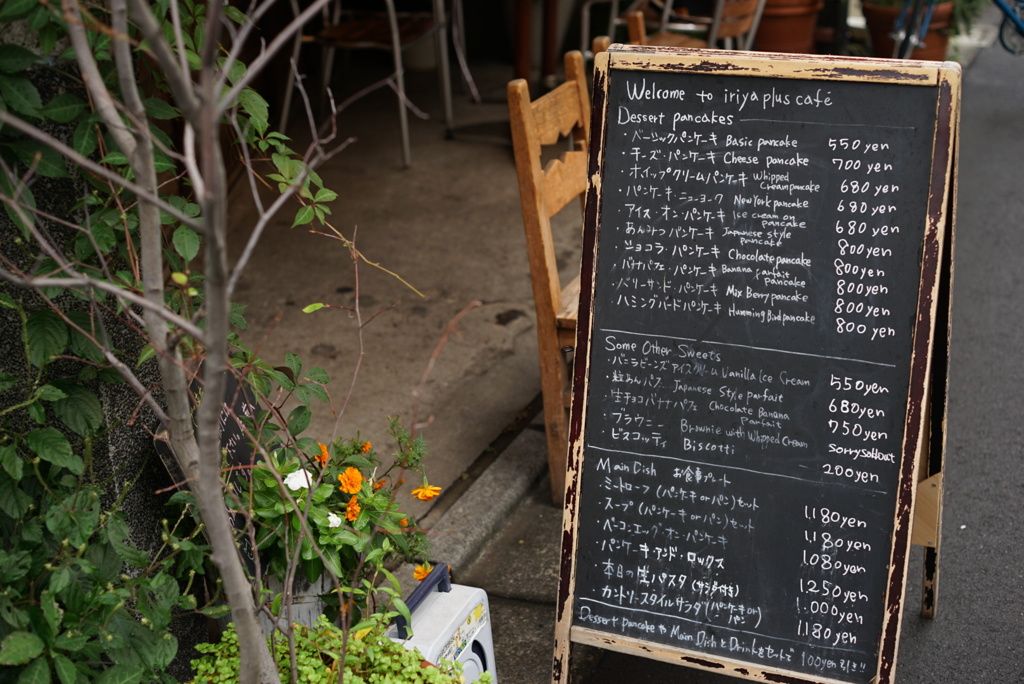 Welcome to iriyaplus café
Dessert pancakes
・ベーシックパンケーキ Basic pancake 550 yen
・チーズ・パンケーキ Cheese pancake 700 yen
・ホイップクリームパンケーキ Whipped Cream pancake 680 yen
・パンケーキ・ニューヨーク New York pancake 680 yen
・アイス・オン・パンケーキ Ice cream on pancake 680 yen
・あんみつパンケーキ Japanese style pancake 800 yen
・ショコラ・パンケーキ Chocolate pancake 800 yen
・バナナパフェ・パンケーキ Banana parfait pancake 800 yen
・ベリーサンド・パンケーキ Mix Berry pancake 800 yen
・ハミングバードパンケーキ Humming Bird pancake 800 yen
Some Other Sweets
・バニラビーンズアイスクリーム Vanilla Ice Cream 550 yen
・粒あんパフェ Japanese Style parfait 680 yen
・生チョコバナナパフェ Chocolate Banana Parfait 750 yen
・ブラウニー Brownie with Whipped Cream Sorry sold out
・ビスコッティ Biscotti 200 yen
Main Dish お食事プレート
・ミートローフ (パンケーキ or パン) セット 1,180 yen
・スープ (パンケーキ or パン) セット 1,180 yen
・ベーコンエッグ・オン・パンケーキ 1,080 yen
・パンケーキ・アンド・ロックス 1,250 yen
・本日の生パスタ (サラダ付き) 1,000 yen
・カントリースタイルサラダ (パンケーキ or パン) 1,180 yen
Dessert pancake や Main Dish と Drink をセットで 100yen 引き!!